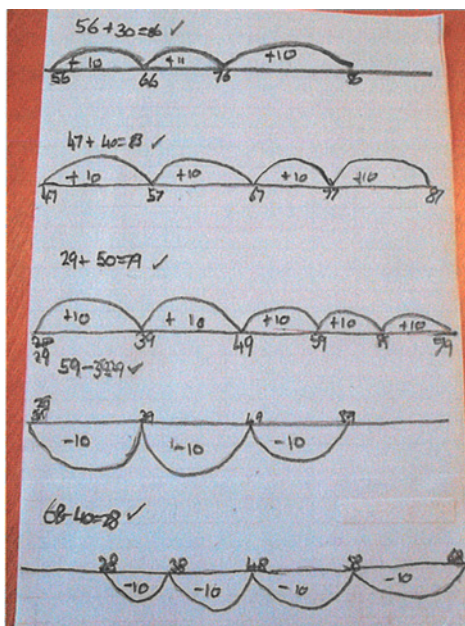 56 + 30 = 86 ✓
+ 10 +10 +10
56 66 76 86
47 + 40 = 83 ✓
+ 10 +10 +10 +10
47 57 67 77 87
29 + 50 = 79 ✓
+10 + 10 +10 +10 +10
29 39 49 59 79
59 - 29 ✓
39 49 59
-10 -10 -10
68 - 40 = 28 ✓
28 38 48 58 68
-10 -10 -10 -10